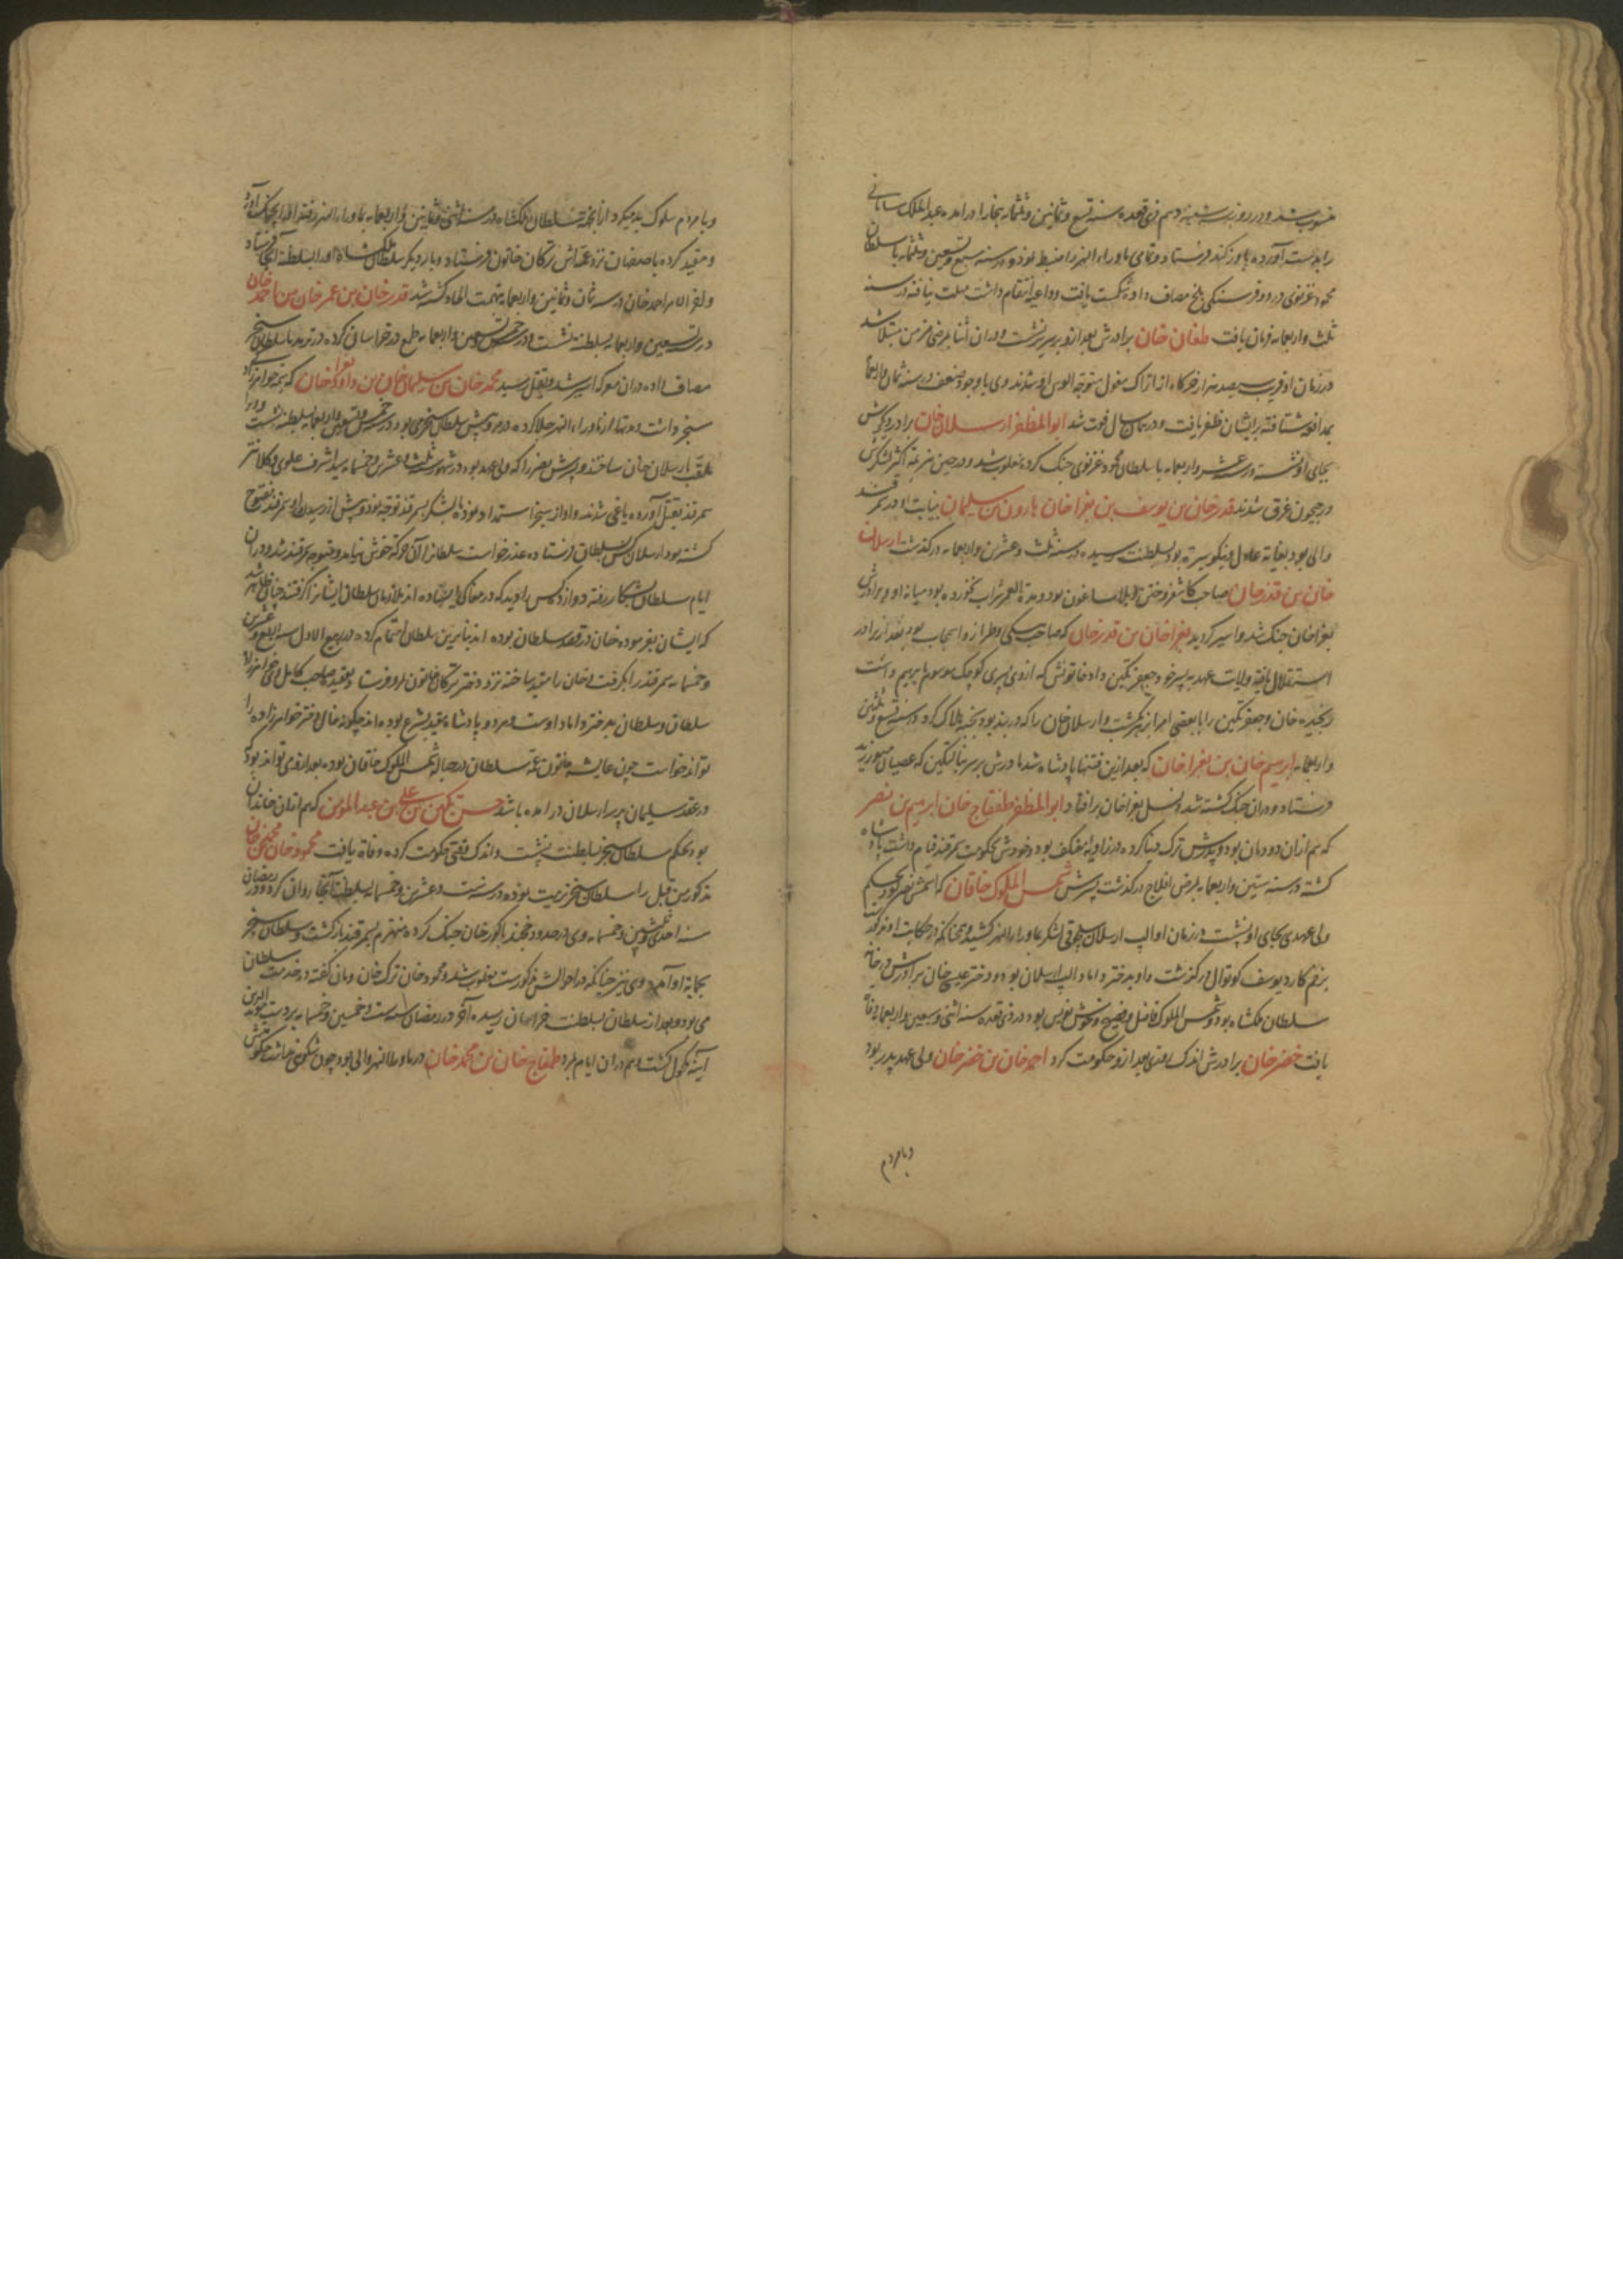 منسوب شد و در روز سه شنبه دهم ذی قعده سنه تسع و ثمانین و ثلثمایه ببخارا درامده عبدالملک سامانی
را بدست آورده باوزکند فرستاد و تمامی ماوراء النهر را ضبط نمود و در سنه سبع و تسعین و ثلثمایه با سلطان
محمود غزنوی در دو فرسنگی بلخ مصاف داده شکست یافت و داعیه انتقام داشت مهلت نیافته در سنه
ثلث و اربعمایه فرمان یافت طغان خان برادرش بعد ازو بر سریر نشست و در ان اثنا بمرض مزمن مبتلا شد
در زمان او قریب سیصد هزار خرکاه از اتراک مغول متوجه الوس او شدند وی با وجود ضعف در سنه ثمان و اربعمایه
بمدافعه شتافته بر ایشان ظفر یافت و در همان سال فوت شد ابوالمظفر ارسلان خان برادر دیگرش
بجای او نشسته در عشر و اربعمایه با سلطان محمود غزنوی جنک کرده مغلوب شد و در حین هزیمت اکثر لشکرش
در جیحون غرق شدند قدرخان بن یوسف بن بغراخان هارون بن سلیمان بنیابت او در سمرقند
والی بود بغایة عادل و نیکو سیرة بود بسلطنت رسیده در سنه ثلث و عشرین و اربعمایه درگذشت ارسلان
خان بن قدرخان صاحب کاشغر و ختن و بلاساغون بود و مدة العمر شراب نخورده بود میانه او و برادرش
بغراخان جنک شد و اسیر گردید بغراخان بن قدرخان که صاحب سکه و طراز و اسبیجاب بود بعد از برادر
استقلال یافته ولایت عهد به پسر خود جعفر تکین داد خاتونش که ازوی پسری کوچک موسوم بابرهیم داشت
رنجیده خان و جعفر تکین را با بعضی امرا بزهر کشت و ارسلان خان را که در بند بود بخبه هلاک کرد در سنه تسع و ثلثین
و اربعمایه ابرهیم خان بن بغراخان که بعد ازین فتنها پادشاه شد مادرش بر سر ینالتکین که عصیان میورزید
فرستاد و در ان جنک کشته شد و نسل بغراخان برافتاد ابوالمظفر طمغاج خان ابرهیم بن نصر
که هم ازان دودمان بود و پدرش ترک دنیا کرده در زاویه معتکف بود و خودش بحکومت سمرقند قیام داشت پادشاه
گشته در سنه ستین و اربعمایه بمرض افلاج درگذشت پسرش شمس الملوک خاقان که اسمش نصر بود بحکم
ولی عهدی بجای او نشست در زمان او الب ارسلان سلجوقی لشکر بماوراء النهر کشید و همچنانکه در حکایت او مذکورست
بزخم کارد یوسف کوتوال درگذشت و او بدختر داماد الب ارسلان بود و دختر عیسی خان برادرش در خانه
سلطان ملکشاه بود و شمس الملوک فاضل و فصیح و خوش نویس بود در ذی قعده سنه اثنی و سبعین و اربعمایه وفات
یافت خضرخان برادرش اندک وقتی بعد ازو حکومت کرد احمدخان بن خضرخان ولی عهد پدر بود
و با مردم
و با مردم سلوک بد میکرد از آنجهت سلطان ملکشاه در سنه اثنی و ثمانین و اربعمایه بماوراء النهر رفته او را بچنک آورد
و مقید کرده باصفهان نزد عمه اش ترکان خاتون فرستاد و بار دیگر سلطان ملکشاه او را بسلطنت آنجا فرستاد
و آخر الامر احمدخان در سنه ثمان و ثمانین و اربعمایه بتهمت الحاد کشته شد قدرخان بن عمرخان بن احمدخان
در تسعین و اربعمایه بسلطنت نشست و در خمس و تسعین و اربعمایه طمع در خراسان کرده در ترمد با سلطان سنجر
مصاف داده در ان معرکه اسیر شد و بقتل رسید محمدخان بن سلیمان خان بن داود بغرا خان که نسبت خواهرزادگی
سنجر داشت و مدتها از ماوراء النهر جلا کرده در مرو پیش سلطان سنجر می بود در خمس و تسعین و اربعمایه بسلطنت نشست و او را
ملقب بارسلان خان ساختند و پسرش نصر را که ولی عهد بود در شهور ثلث و عشرین و خمسمایه سید اشرف علوی و کلانتر
سمرقند بقتل آورده یاغی شدند و او از سنجر استمداد نموده بالشکر بسمرقند توجه نمود و پیش از رسیدن او سمرقند مفتوح
گشته بود ارسلان کس بسلطان فرستاده عذر خواست سلطان را آن حرکت خوش نیامد و متوجه سمرقند شد و در ان
ایام سلطان بشکار رفته دوازده کس را دید که در مغاکی ایستاده اند ملازمان سلطان ایشانرا گرفتند چنان ظاهر شد
که ایشان بفرموده خان در قصد سلطان بوده اند بنابرین سلطان اهتمام کرده در ربیع الاول سنه اربع و عشرین
و خمسمایه سمرقند را بگرفت و خان را مقید ساخته نزد دختر ترکان خاتون بمرو فرستاد
سلطان و سلطان بدختر داماد اوست و هر دو پادشاه مقید بشرع بوده اند چگونه خال دختر خواهرزاده را
تواند خواست چون عایشه خاتون عمه سلطان در حباله شمس الملوک خاقان بوده بعد ازوی تواند بود که
در عقد سلیمان پدر ارسلان درامده باشد حسن تکین بن علی بن عبدالمومن که هم ازان خاندان
بود بحکم سلطان سنجر بسلطنت نشست و اندک وقتی حکومت کرده وفاة یافت محمودخان بن محمدخان
مذکور من قبل را سلطان سنجر تربیت نموده در سنه ست و عشرین و خمسمایه بسلطنت آنجا روان کرد و در رمضان
سنه احدی و ثلثین و خمسمایه وی در حدود خجند با کورخان جنک کرده منهزم بسمرقند بازگشت و سلطان سنجر
بحمایة او آمد و وی نیز چنانکه در احوالش مذکورست مغلوب شد و محمودخان ترک خان و مان گفته در خدمت سلطان
می بود و بعد از سلطان بسلطنت خراسان رسیده آخر در رمضان سنه ست و خمسین و خمسمایه بر دست موید الدین
آینه مکحول گشت و هم در ان ایام بمرد طمغاج خان بن محمدخان در ماوراء النهر والی بود چون شکوهی نداشت حکومتش